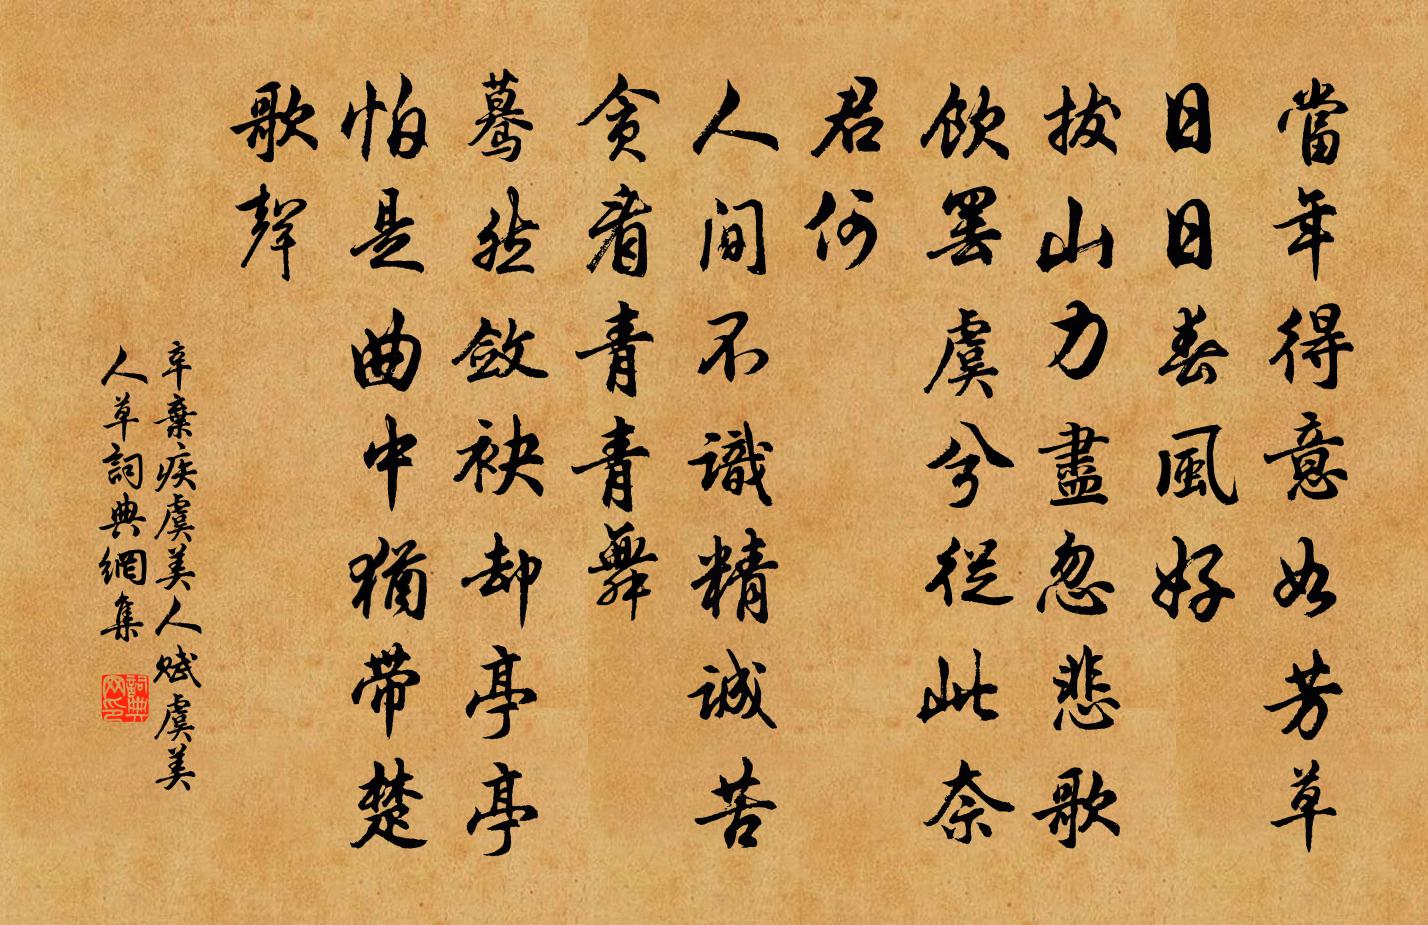 當年得意如芳草
日日春風好
拔山力盡忽悲歌
飲罷虞兮從此奈
君何
人間不識精誠苦
貪看青青舞
驀然斂袂却亭亭
怕是曲中猶帶楚
歌聲
辛棄疾虞美人賦虞美
人草詞典網集
詞典
网印